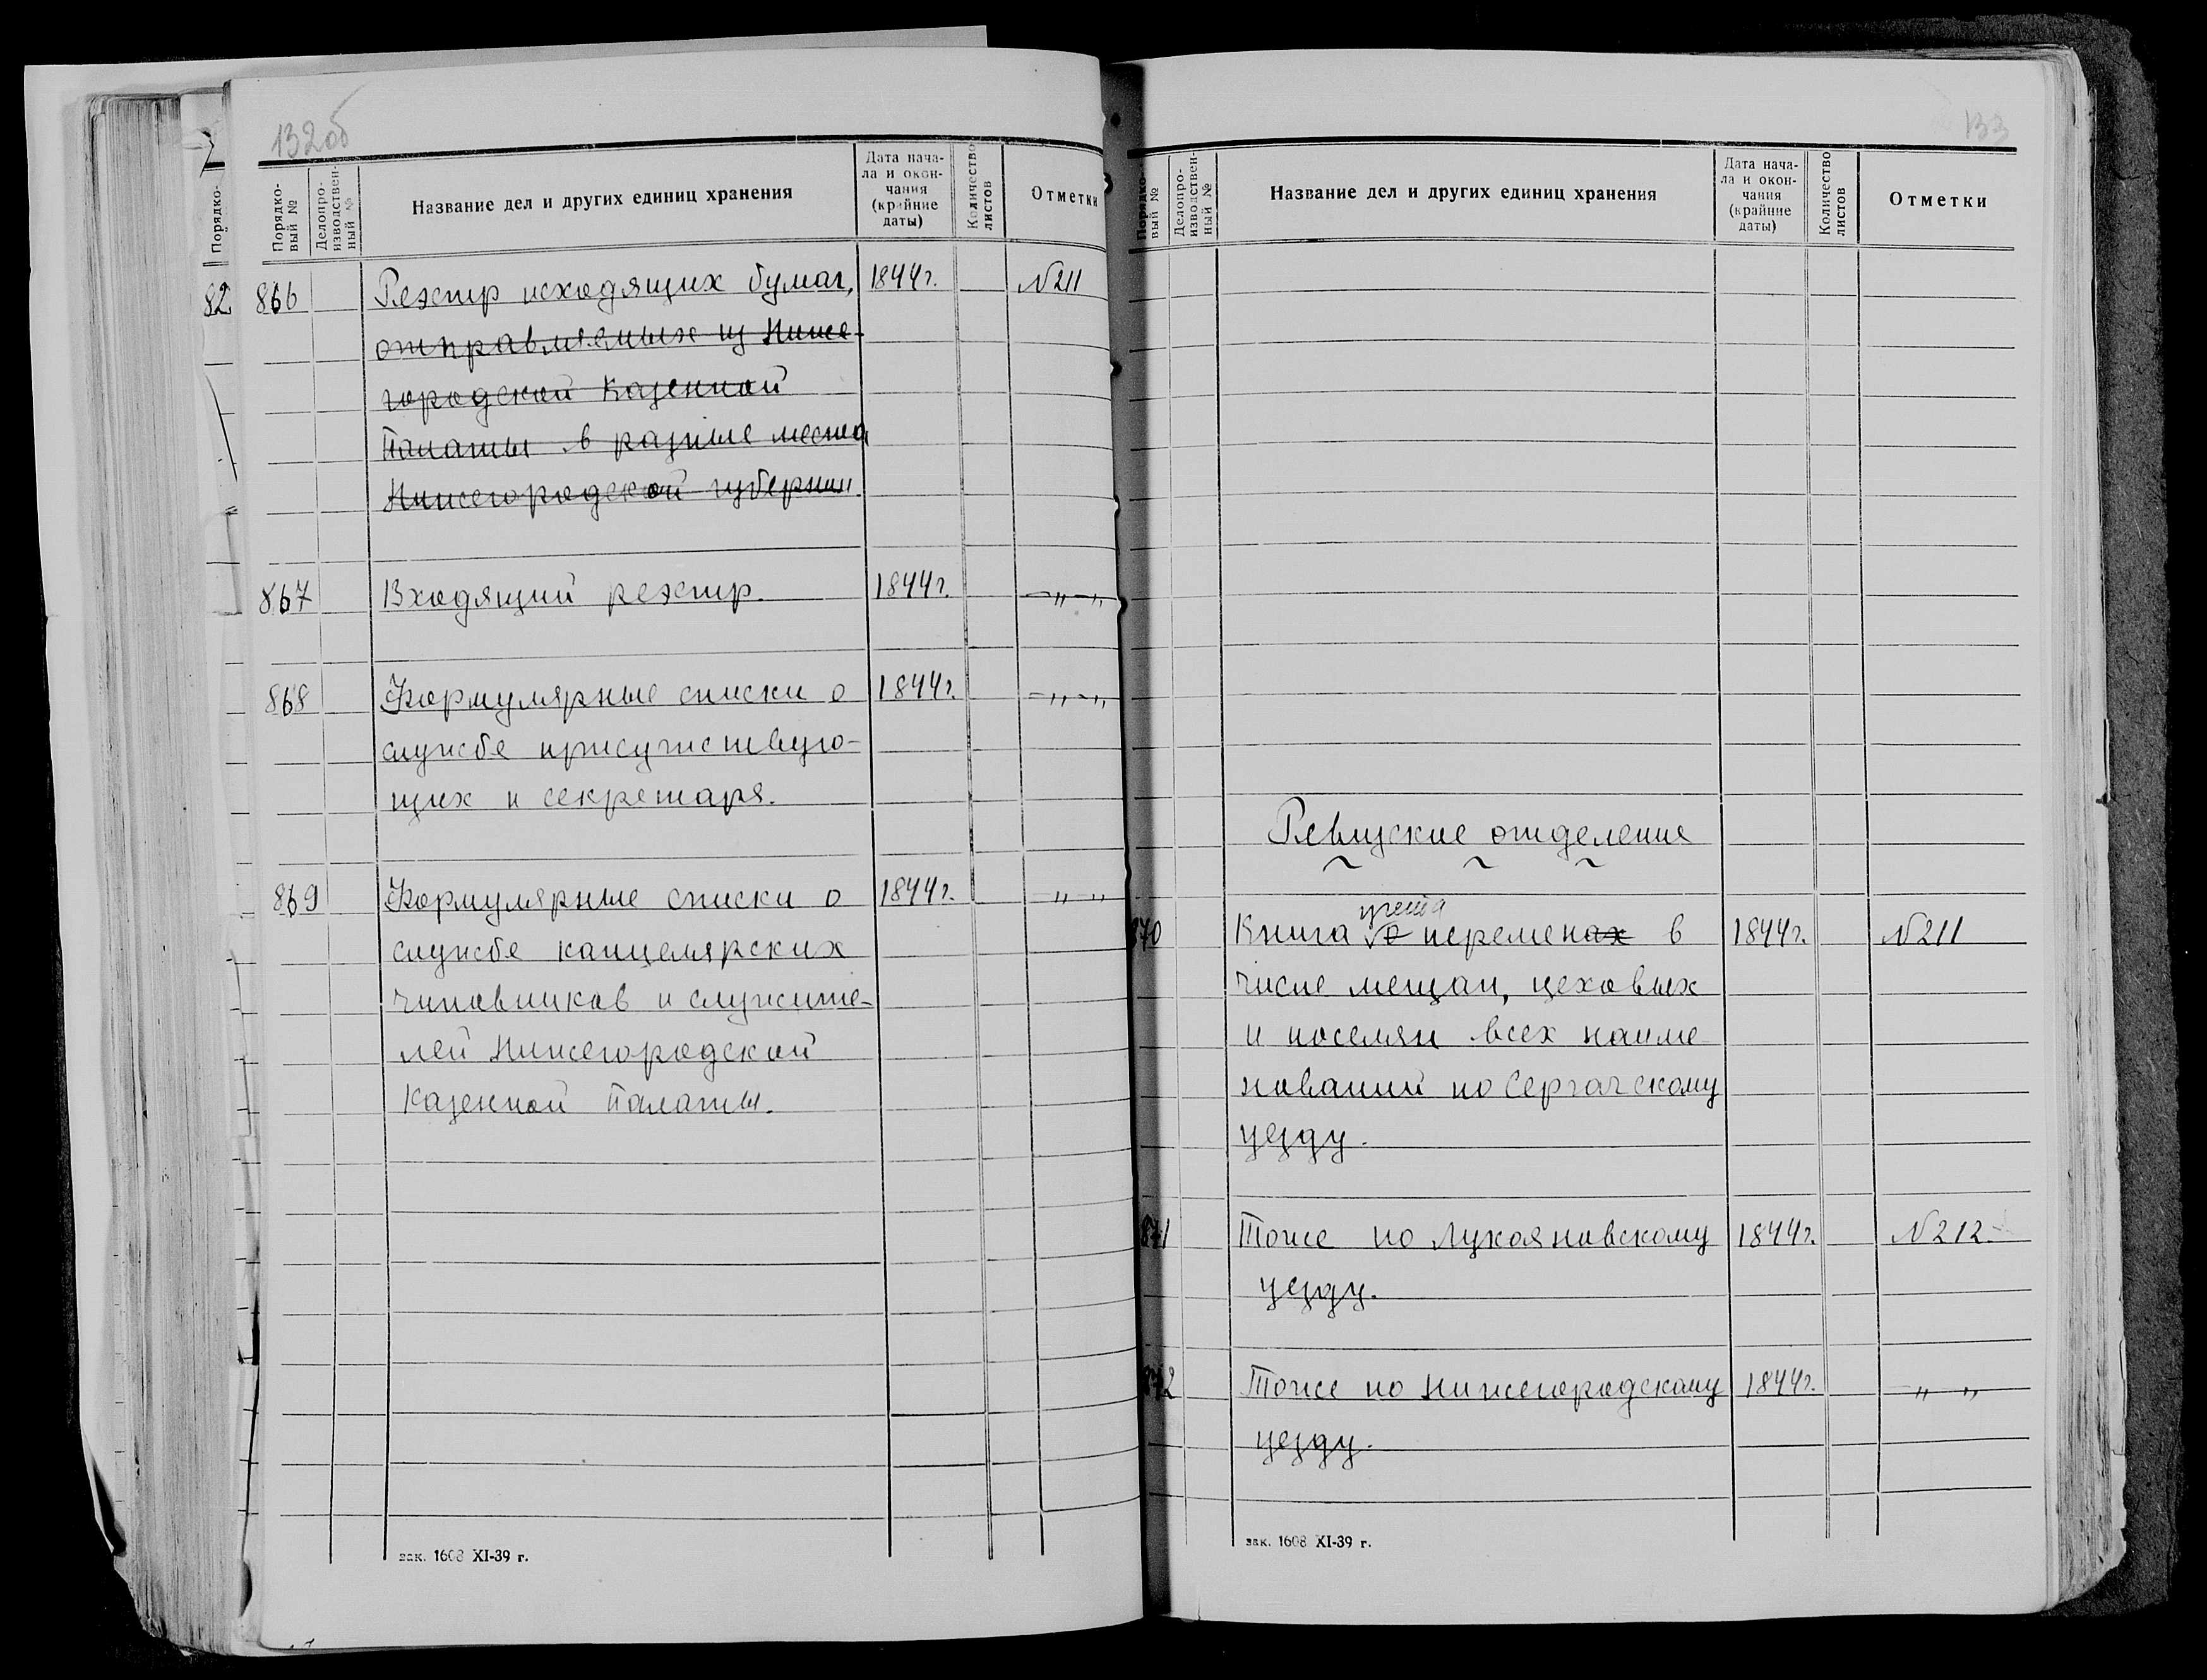 132об
Порядко-
Порядко-
вый №
Делопро-
изводствен-
ный №
Название дел и других единиц хранения
Дата нача-
ла и окон-
чания
(крайние
даты)
Количество
листов
Отметки
82
866 Реэстр исходящих бумаг, 1844г. №211
отправляемых из Ниже-
городской Казенной
Палаты в разные места
Нижегородской губернии.
867 Входящий реэстр. 1844г. —„—„
868 Формулярные списки о 1844г. —„—„
службе присутствую-
щих и секретаря.
869 Формулярные списки о 1844г. „ „
службе канцелярских
чиновников и служите-
лей Нижегородской
Казенной Палаты.
зак. 1608 XI-39 г.
133
Порядко-
вый №
Делопро-
изводствен-
ный №
Название дел и других единиц хранения
Дата нача-
ла и окон-
чания
(крайние
даты)
Количество
листов
Отметки
Ревизские отделения
учета
870 Книга о переменах в 1844г. №211
числе мещан, цеховых
и поселян всех наиме
нований по Сергачскому
уезду.
871 Тоже по Лукояновскому 1844г. №212
уезду.
872 Тоже по Нижегородскому 1844г. „ „
уезду.
зак. 1608 XI-39 г.